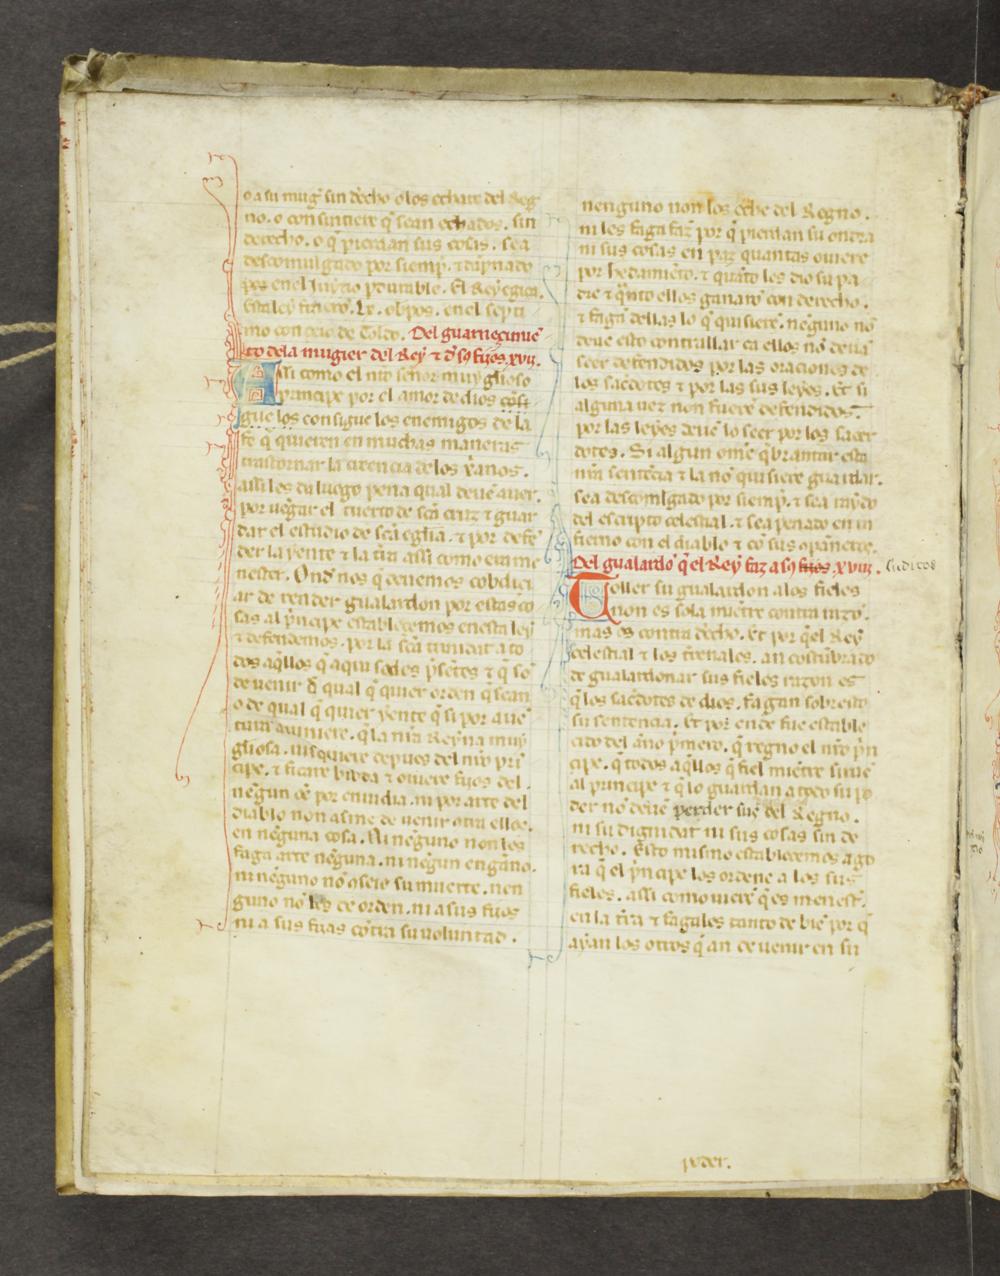 o a su mug̃ sin dr̃cho o los echare del Reg
no. o consintiere q̃ sean echados. sin
derecho. o q̃ pierdan sus cosas. sea
descomulgado por siemp̃. ⁊ dapnado
por en el iuyzio perdurable. El Rey egica.
Esta ley fizieron. Lx. obpos. en el septi
mo conceio de Toledo. Del guarnecimiẽ
to dela mugier del Rey ⁊ d̃ sꝯ fijos. xvii.
Assi como el nr̃o señor muy glioso
principe por el amor de dios cõsi
gue los consigue los enemigos de la
fe q̃ quieren en muchas maneras
trastornar la creencia de los xr̃anos.
assi les da luego pena qual deuẽ auer.
por uẽgar el tuerto de scã cruz ⁊ guar
dar el estudio de scã eglĩa. ⁊ por defẽ
der la yente ⁊ la tr̃ra assi como em me
nester. Ond nos q̃ deuemos cobdici
ar de render gualardon por estas co
sas al p̃ncipe establecemos en esta ley
⁊ defendemos. por la scã trinidat a to
dos aq̃llos q̃ aqui sodes p̃sẽtes ⁊ q̃ sõ
de uenir d̃ qual q̃ quier orden q̃ sean
o de qual q̃ quier yente q̃ si por auẽ
tura auiniere. q̃ la nr̃a Reyna muy
gliosa. uisquiere depues del nr̃o pri
cipe. ⁊ ficare bibda ⁊ ouiere fijos del.
nẽgun oẽ por enuidia. ni por arte del
diablo non asme de uenir otra ellos.
en nẽguna cosa. Ni nẽguno non les
faga arte nẽguna. ni nẽgun engãno.
ni nẽguno nõ osee su muerte. nen
guno nõ les ce orden. ni a sus fijos
ni a sus fijas cõtra su voluntad.
nenguno non los eche del Regno.
ni les faga faz por q̃ pierdan su ondra
ni sus cosas en paz quantas ouiere
por hedamiẽto. ⁊ quãto les dio su pa
dre ⁊ q̃nto ellos ganarõ con derecho.
⁊ fagã dellas lo q̃ quisierẽ. nẽguno nõ
deue esto contrallar ca ellos nõ deuẽ
seer defendidos por las oraciones de
los sac̃dotes ⁊ por las sus leyes. Et si
alguna uez non fuerẽ defendidos.
por las leyes deuẽ lo seer por los sacer
dotes. Si algun ome q̃brantar esta
nr̃a sentẽcia ⁊ la nõ quisiere guardar.
sea descomlgado por siemp̃. ⁊ sea raydo
del escripto celestial. ⁊ sea penado en in
fierno con el diablo ⁊ cõ sus cõpãneros.
Del gualardõ q̃ el Rey faz a sꝯ fijos. xviii. suditos
Toller su gualardon a los fieles
non es sola miẽtre contra iuizi⁰.
mas es contra dr̃cho. Et por q̃ el Rey
celestial ⁊ los t̃renales. an costũbrado
de gualardonar sus fieles razon es
q̃ los sac̃dotes de dios. fagan sobresto
su sentencia. Et por ende fue estable
cido del ãno p̃mero. q̃ regno el nr̃o p̃n
cipe. q̃ todos aq̃llos q̃ fiel miẽtre siruẽ
al principe ⁊ q̃ lo guardan a todo su po
der nõ deuẽ perder sue del Regno.
ni su dignidat ni sus cosas sin de
recho. Esto mismo establecemos ago
ra q̃ el p̃ncipe los ordene a los sus
fieles. assi como uiere q̃ es menest̃.
en la tr̃ra ⁊ fagales tanto de biẽ por q̃
ayan los otros q̃ an de uenir en su
poder.